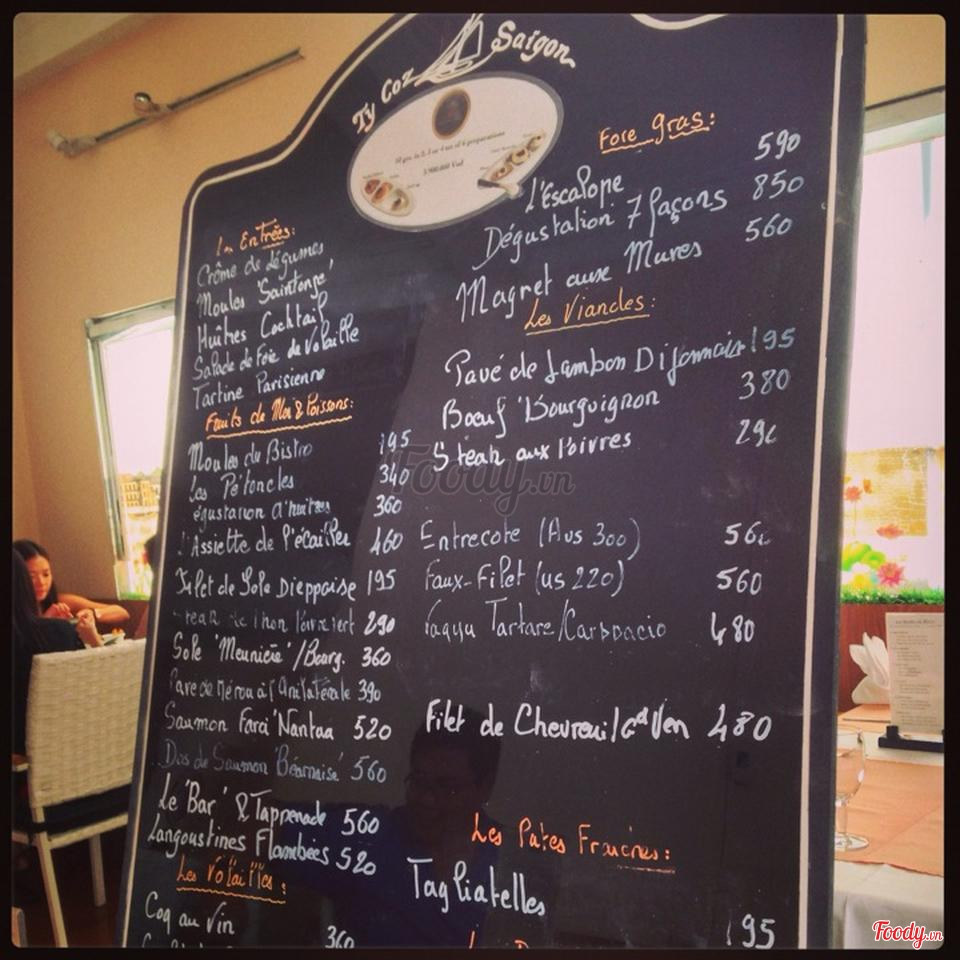 Ty Coz Saigon
3.900.000 Vnd
Les Entrées:
Crème de légumes
Moules 'Saintonge'
Huîtres Cocktail
Salade de Foie de Volaille
Tartine Parisienne
Fruits de Mer & Poissons:
Moules du Bistro 195
Les Pétoncles 340
égustation d'huitres 360
L'Assiette de l'écailler 460
Filet de Sole Dieppoise 195
Steak de thon Poivre vert 290
Sole 'Meunière'/Bourg. 360
Pavé de Mérou à l'Unilatérale 390
Saumon Farci 'Nantua 520
Dos de Saumon 'Béarnaise' 560
Le 'Bar' & Tappenade 560
Langoustines Flambées 520
Les Volailles:
Coq au Vin 360
Foie gras:
L'Escalope 590
Dégustation 7 façons 850
Magret aux Mures 560
Les Viandes:
Pavé de Jambon Dijonnais 195
Bœuf 'Bourguignon 380
Steak aux Poivres 290
Entrecote (Aus 300) 560
Faux-Filet (us 220) 560
Tartare/Carpaccio 480
Filet de Chevreuil Gd Ven 480
Les Pates Fraiches:
Tagliatelles
195
Foody.vn
Foody.vn